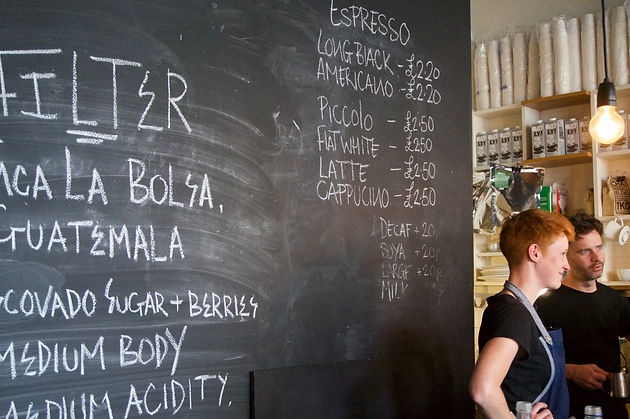 FILTER
FINCA LA BOLSA,
GUATEMALA
MUSCOVADO SUGAR + BERRIES
MEDIUM BODY
MEDIUM ACIDITY.
ESPRESSO
LONG BLACK - £2.20
AMERICANO - £2.20
PICCOLO - £2.50
FLAT WHITE - £2.50
LATTE - £2.50
CAPPUCINO - £2.50
DECAF + 20p
SOYA + 20p
LARGE + 20p
MILK
1KG